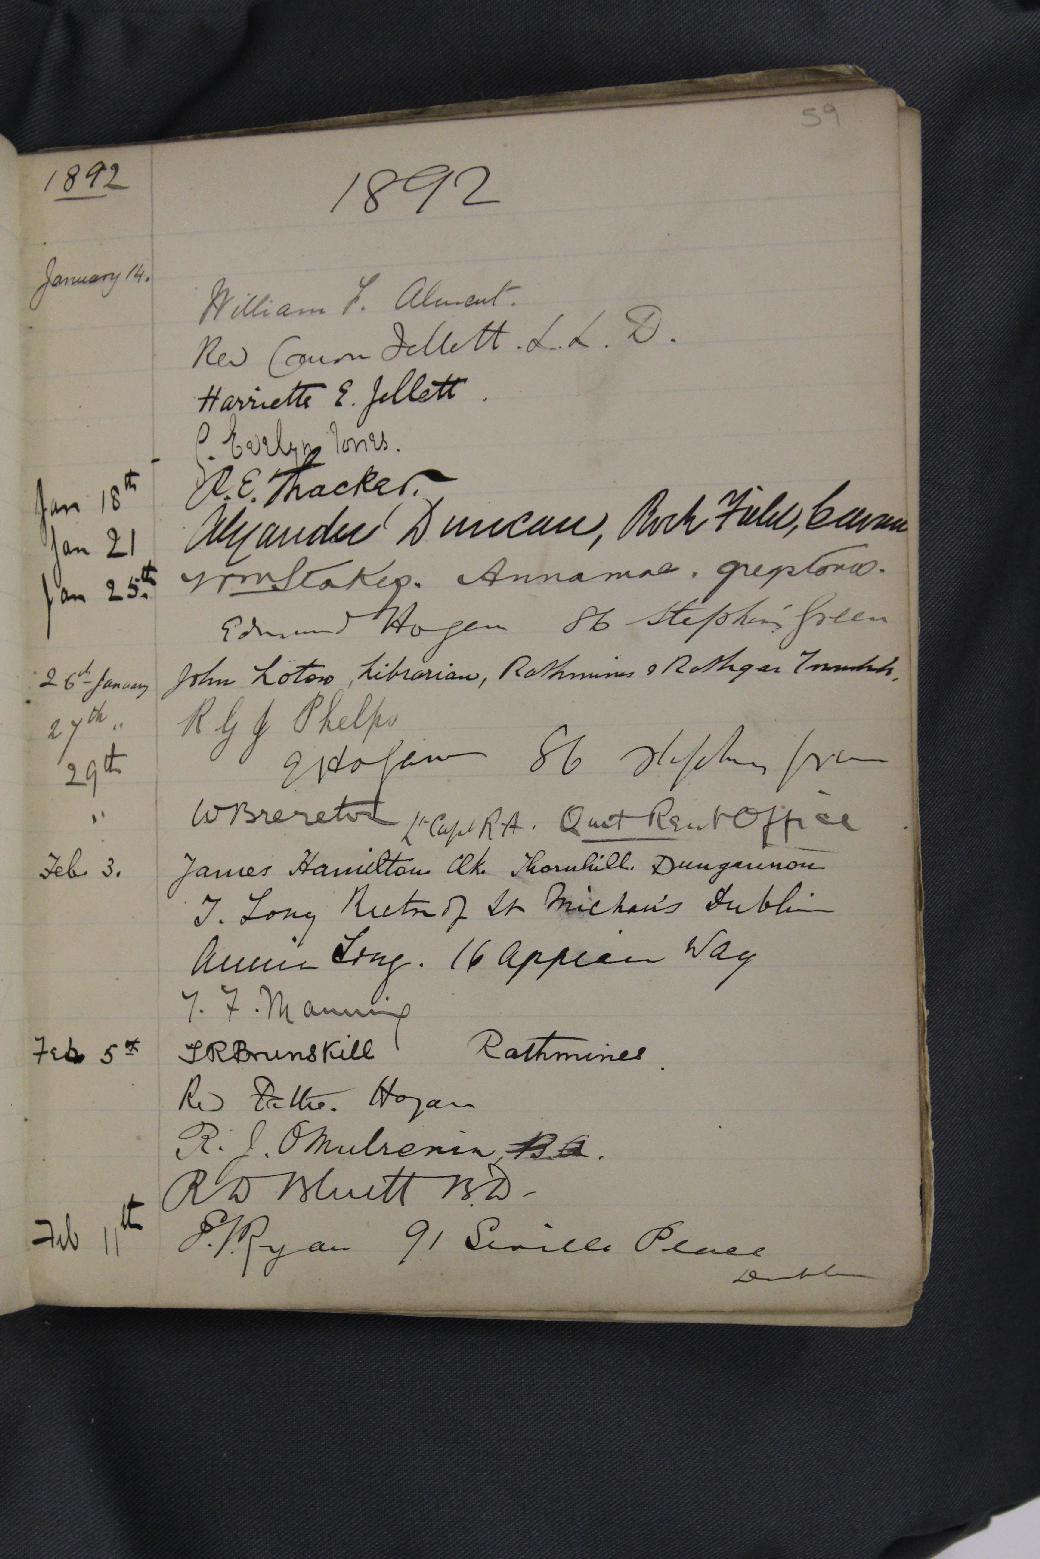 59
1892 1892
January 14. William F. Alment.
Rev Canon Jellett. L. L. D.
Harriette E. Jellett.
Evelyn Jones.
Jan 18th R. E. Thacker.
Jan 21 Alexander Duncan, Rock Field, Cavan
Jan 25th Wm Stokes. Annamoe. Greystones.
Edmund Hogan 86 Stephens Green
26th January John Librarian, Rathmines & Rathgar
27th " R G J Phelps
29th E Hogan 86 Stephens Green
" W Brereton Lt Capt R.A. Quit Rent Office
Feb 3. James Hamilton Thornhill Dungannon
T. Long Rector of St Michan's Dublin
Annie Long. 16 Appian Way
T. F. Manning
Feb 5th S R Brunskill Rathmines.
Rev Father Hogan
R. J. O'Mulrenin, B A.
R D Bluett B.D.
Feb 11th Ryan 91 Seville Place
Dublin